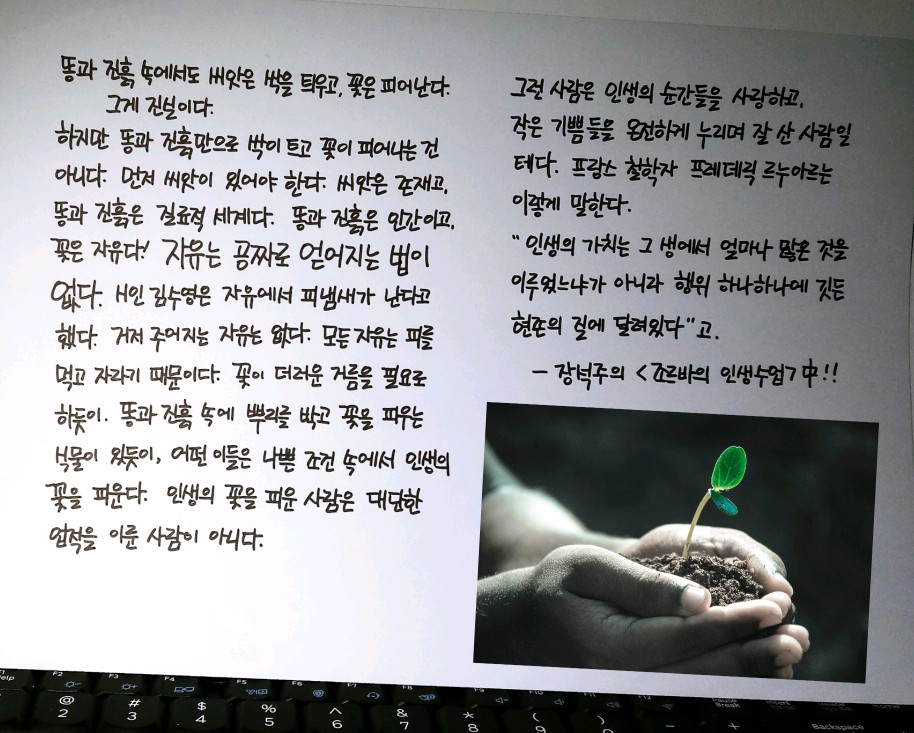 똥과 진흙 속에서도 씨앗은 싹을 틔우고, 꽃은 피어난다.
그게 진실이다.
하지만 똥과 진흙만으로 싹이 트고 꽃이 피어나는 건
아니다. 먼저 씨앗이 있어야 한다. 씨앗은 존재고,
똥과 진흙은 질료적 세계다. 똥과 진흙은 인간이고,
꽃은 자유다! 자유는 공짜로 얻어지는 법이
없다. 시인 김수영은 자유에서 피냄새가 난다고
했다. 거저 주어지는 자유는 없다. 모든 자유는 피를
먹고 자라기 때문이다. 꽃이 더러운 거름을 필요로
하듯이. 똥과 진흙 속에 뿌리를 박고 꽃을 피우는
식물이 있듯이, 어떤 이들은 나쁜 조건 속에서 인생의
꽃을 피운다. 인생의 꽃을 피운 사람은 대단한
업적을 이룬 사람이 아니다.
그런 사람은 인생의 순간들을 사랑하고,
작은 기쁨들을 온전하게 누리며 잘 산 사람일
테다. 프랑스 철학자 프레데릭 르누아르는
이렇게 말한다.
"인생의 가치는 그 생에서 얼마나 많은 것을
이루었느냐가 아니라 행위 하나하나에 깃든
현존의 질에 달려있다"고.
- 장석주의 <조르바의 인생수업> 中!!
Help F1 F2 F3 F4 F5 F6 F7 F8 F9 F10 F11 F12 Pause Break
@ # $ % ^ & * ( ) _ + Backspace
2 3 4 5 6 7 8 9 0